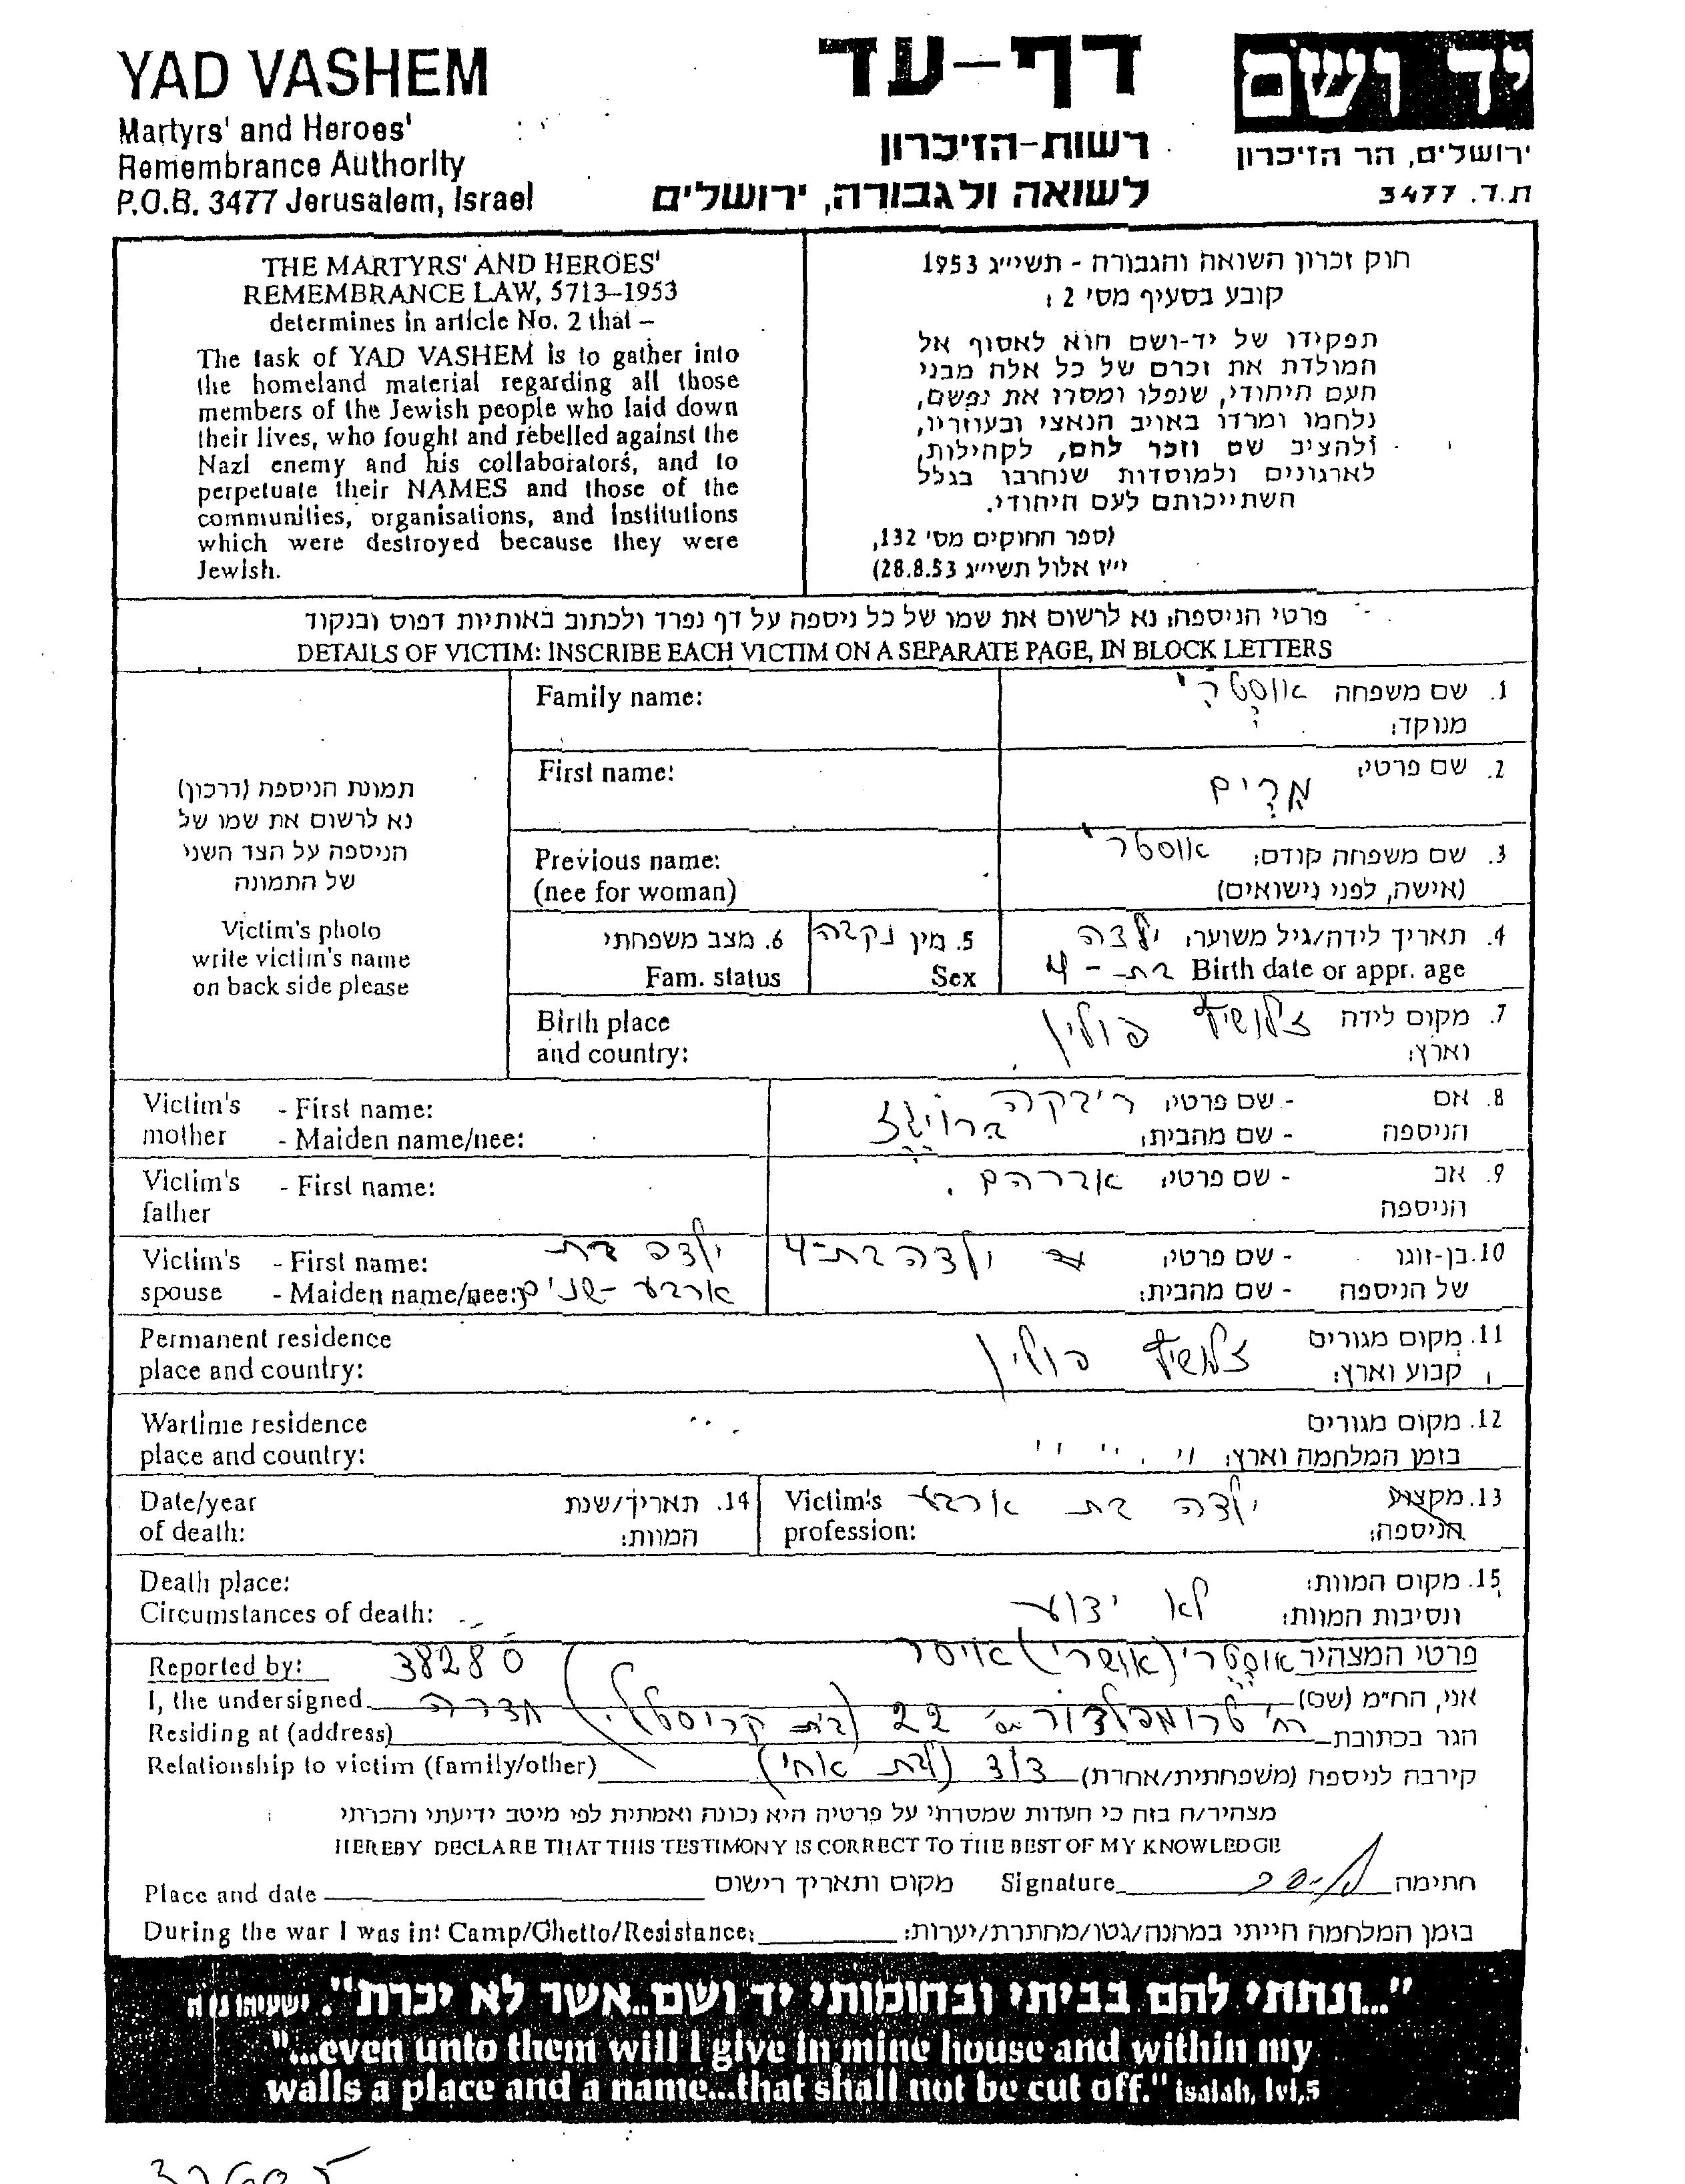 YAD VASHEM
Martyrs' and Heroes'
Remembrance Authority
P.O.B. 3477 Jerusalem, Israel
דף-עד
רשות-הזיכרון
לשואה ולגבורה, ירושלים
יד ושם
ירושלים, הר הזיכרון
ת.ד. 3477
THE MARTYRS' AND HEROES'
REMEMBRANCE LAW, 5713–1953
determines in article No. 2 that –
The task of YAD VASHEM is to gather into
the homeland material regarding all those
members of the Jewish people who laid down
their lives, who fought and rebelled against the
Nazi enemy and his collaborators, and to
perpetuate their NAMES and those of the
communities, organisations, and institutions
which were destroyed because they were
Jewish.
חוק זכרון השואה והגבורה - תשי״ג 1953
קובע בסעיף מס' 2 :
תפקידו של יד-ושם הוא לאסוף אל
המולדת את זכרם של כל אלה מבני
העם היהודי, שנפלו ומסרו את נפשם,
נלחמו ומרדו באויב הנאצי ובעוזריו,
ולהציב שם וזכר להם, לקהילות,
לארגונים ולמוסדות שנחרבו בגלל
השתייכותם לעם היהודי.
(ספר החוקים מס' 132,
י״ז אלול תשי״ג 28.8.53)
פרטי הניספה: נא לרשום את שמו של כל ניספה על דף נפרד ולכתוב באותיות דפוס ובנקוד
DETAILS OF VICTIM: INSCRIBE EACH VICTIM ON A SEPARATE PAGE, IN BLOCK LETTERS
תמונת הניספה (דרכון)
נא לרשום את שמו של
הניספה על הצד השני
של התמונה
Victim's photo
write victim's name
on back side please
Family name:
1. שם משפחה אוסטרי
מנוקד:
First name:
2. שם פרטי:
מרים
Previous name:
(nee for woman)
3. שם משפחה קודם: אוסטרי
(אישה, לפני נישואים)
4. תאריך לידה/גיל משוער: ילדה
Birth date or appr. age בת - 4
5. מין נקבה
Sex
6. מצב משפחתי
Fam. status
Birth place
and country:
7. מקום לידה פולין
וארץ:
Victim's - First name:
mother - Maiden name/nee:
8. אם - שם פרטי: ריבקה
הניספה - שם מהבית:
Victim's - First name:
father
9. אב - שם פרטי: אברהם .
הניספה
Victim's - First name: ילדה בת
spouse - Maiden name/nee: ארבע - שנים
10. בן-זוגו - שם פרטי: ילדה בת-4
של הניספה - שם מהבית:
Permanent residence
place and country:
11. מקום מגורים פולין
קבוע וארץ:
Wartime residence
place and country:
12. מקום מגורים
בזמן המלחמה וארץ: '' '' ''
Date/year
of death:
14. תאריך/שנת
המוות:
Victim's
profession:
13. מקצוע ילדה בת ארבע
הניספה:
Death place:
Circumstances of death:
15. מקום המוות:
ונסיבות המוות: לא ידוע
Reported by: 38280
פרטי המצהיר אוסטרי (אושרי) אויסר
I, the undersigned
אני, הח״מ (שם)
חדרה
Residing at (address)
הגר בכתובת רח' טרומפלדור מס' 22 (בית קריסטל)
Relationship to victim (family/other)
קירבה לניספה (משפחתית/אחרת) דוד (לבת אחי)
מצהיר/ה בזה כי העדות שמסרתי על פרטיה היא נכונה ואמתית לפי מיטב ידיעתי והכרתי
HEREBY DECLARE THAT THIS TESTIMONY IS CORRECT TO THE BEST OF MY KNOWLEDGE
Place and date
מקום ותאריך רישום
Signature
חתימה
During the war I was in: Camp/Ghetto/Resistance:
בזמן המלחמה הייתי במחנה/גטו/מחתרת/יערות:
"...ונתתי להם בביתי ובחומותי יד ושם..אשר לא יכרת". ישעיהו נו ה
"...even unto them will I give in mine house and within my
walls a place and a name...that shall not be cut off." isaiah, lvi,5